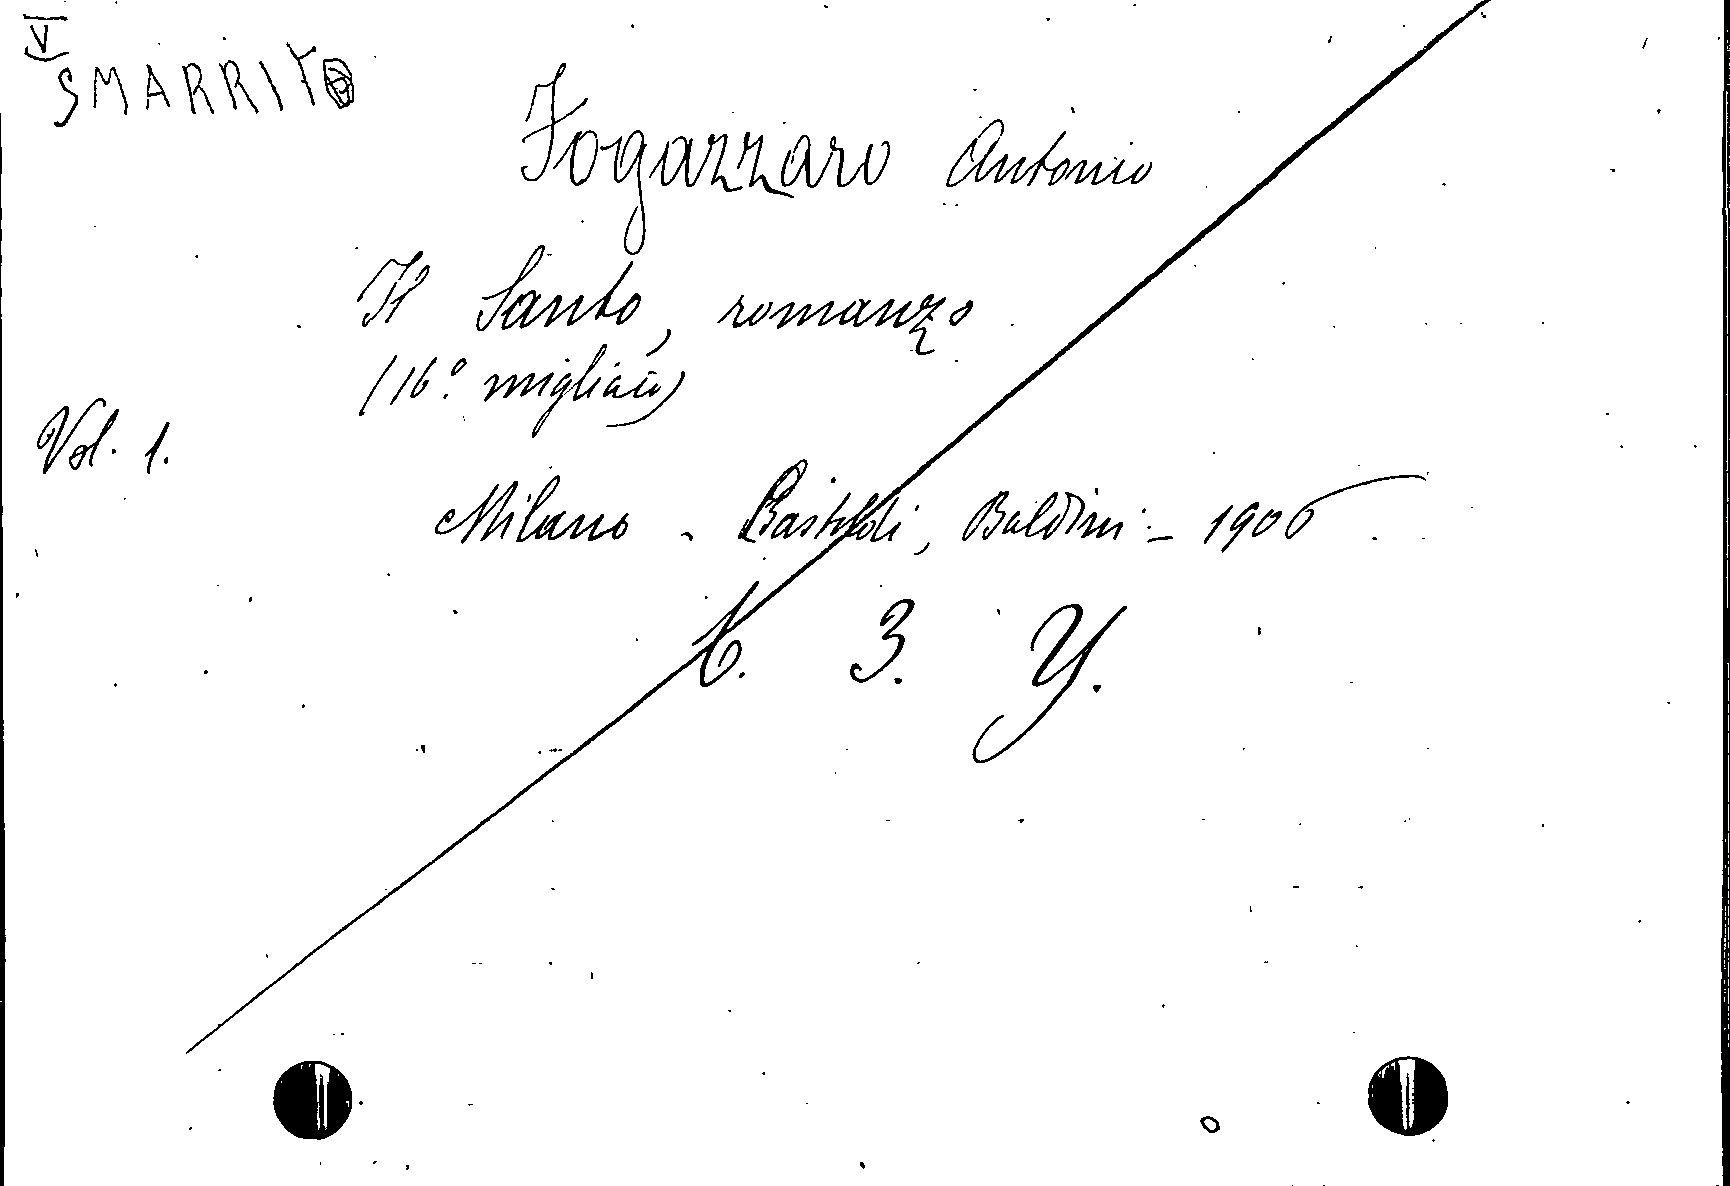 V
SMARRITO
Fogazzaro Antonio
Il Santo, romanzo
(16.° migliaio)
Vol. 1.
Milano - Bastoldi, Baldini - 1906
6. 3. Y.